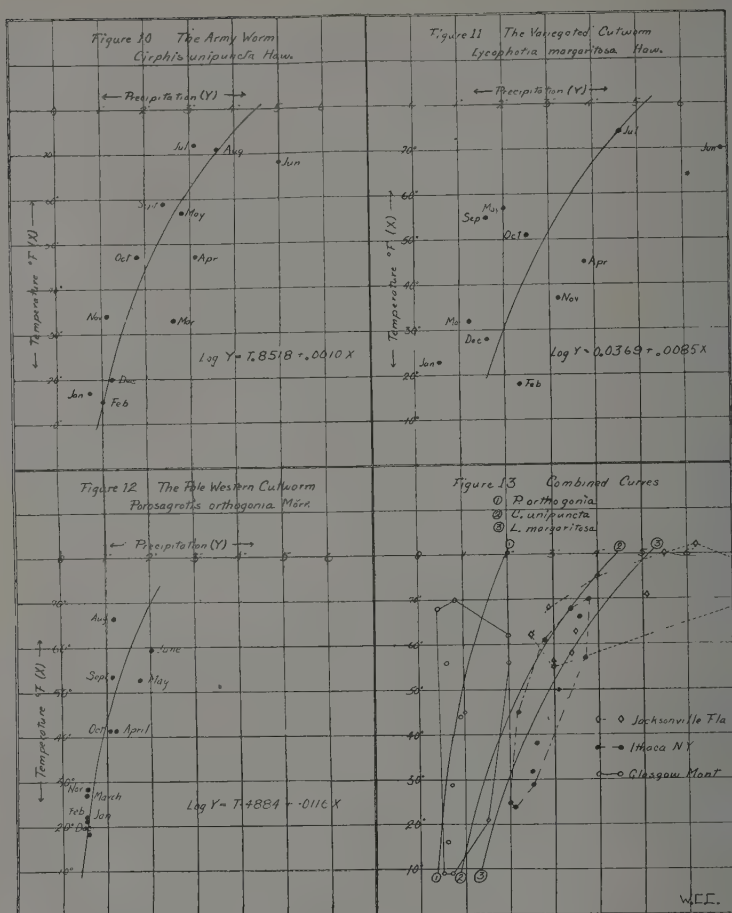 Figure 10 The Army Worm
Cirphis unipuncta Haw.
← Precipitation (Y) →
0 1" 2" 3" 4" 5" 6"
← Temperature °F (X) →
70°
60°
50°
40°
30°
20°
10°
Jul
Aug
Jun
Sept
May
Oct
Apr
Nov
Mar
Dec
Jan
Feb
Log Y = T.8518 + .0010 X
Figure 11 The Variegated Cutworm
Lycophotia margaritosa Haw.
← Precipitation (Y) →
← Temperature °F (X) →
70°
60°
50°
40°
30°
20°
10°
Jul
Jun
Sep
Oct
Apr
Nov
Dec
Jan
Feb
Log Y = 0.0369 + .0085 X
Figure 12 The Pale Western Cutworm
Porosagrotis orthogonia Morr.
← Precipitation (Y) →
← Temperature °F (X) →
70°
60°
50°
40°
30°
20°
10°
Aug
June
Sept
May
Oct
April
Nov
March
Feb
Jan
Dec
Log Y = T.4884 + .0116 X
Figure 13 Combined Curves
① P. orthogonia
② C. unipuncta
③ L. margaritosa
① ② ③
70°
60°
50°
40°
30°
20°
10°
Jacksonville Fla
Ithaca NY
Glasgow Mont
① ② ③